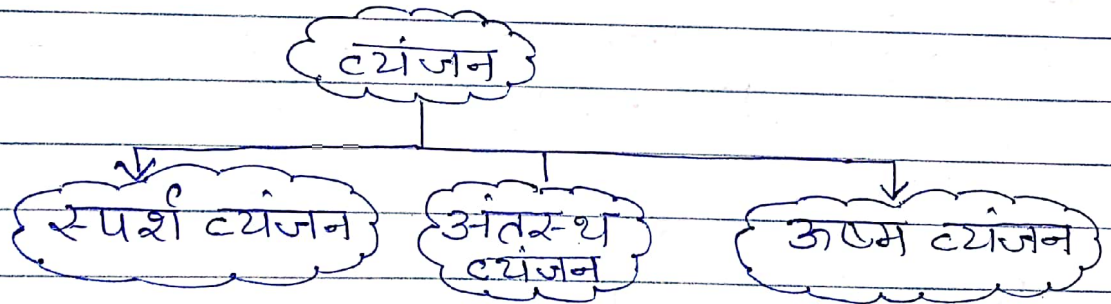 व्यंजन
स्पर्श व्यंजन
अंतस्थ
व्यंजन
ऊष्म व्यंजन